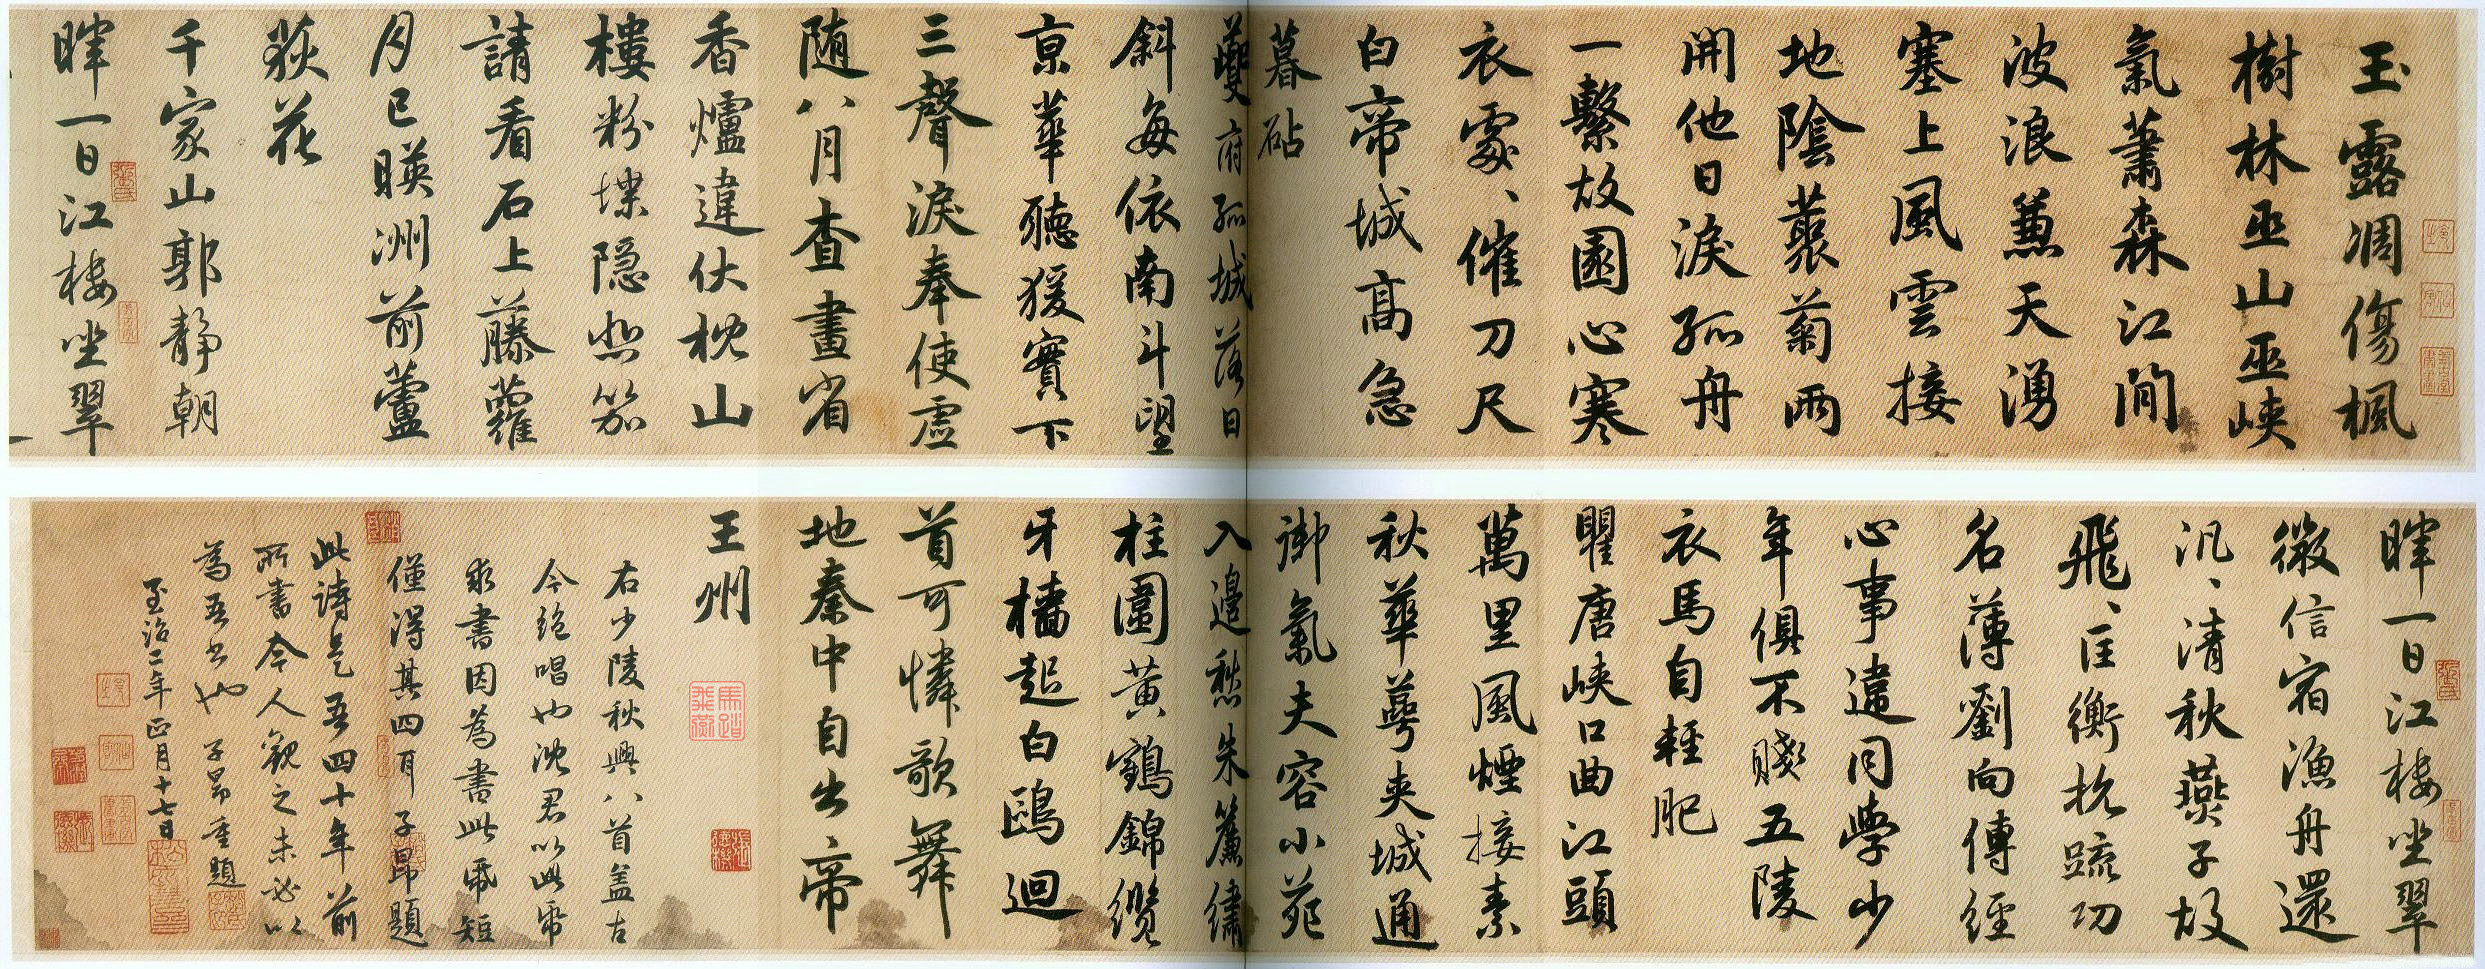 玉露凋傷楓
樹林巫山巫峽
氣蕭森江間
波浪兼天湧
塞上風雲接
地陰藂菊兩
開他日淚孤舟
一繫故園心寒
衣處、催刀尺
白帝城高急
暮砧
夔府孤城落日
斜每依南斗望
京華聽猨實下
三聲淚奉使虛
随八月查畫省
香爐違伏枕山
樓粉堞隐悲笳
請看石上藤蘿
月已暎洲前蘆
荻花
千家山郭靜朝
暉一日江樓坐翠
暉一日江樓坐翠
微信宿漁舟還
汎、清秋燕子故
飛、匡衡抗疏功
名薄劉向傳經
心事違同學少
年俱不賤五陵
衣馬自輕肥
瞿唐峽口曲江頭
萬里風煙接素
秋華萼夾城通
御氣夫容小苑
入邊愁朱簾繡
柱圍黃鶴錦纜
牙檣起白鷗迴
首可憐歌舞
地秦中自古帝
王州
右少陵秋興八首盖古
今絕唱也沈君以此帋
求書因為書此帋短
僅得其四耳子昂題
此詩是吾四十年前
所書今人觀之未必以
為吾書也子昂重題
至治二年正月十七日